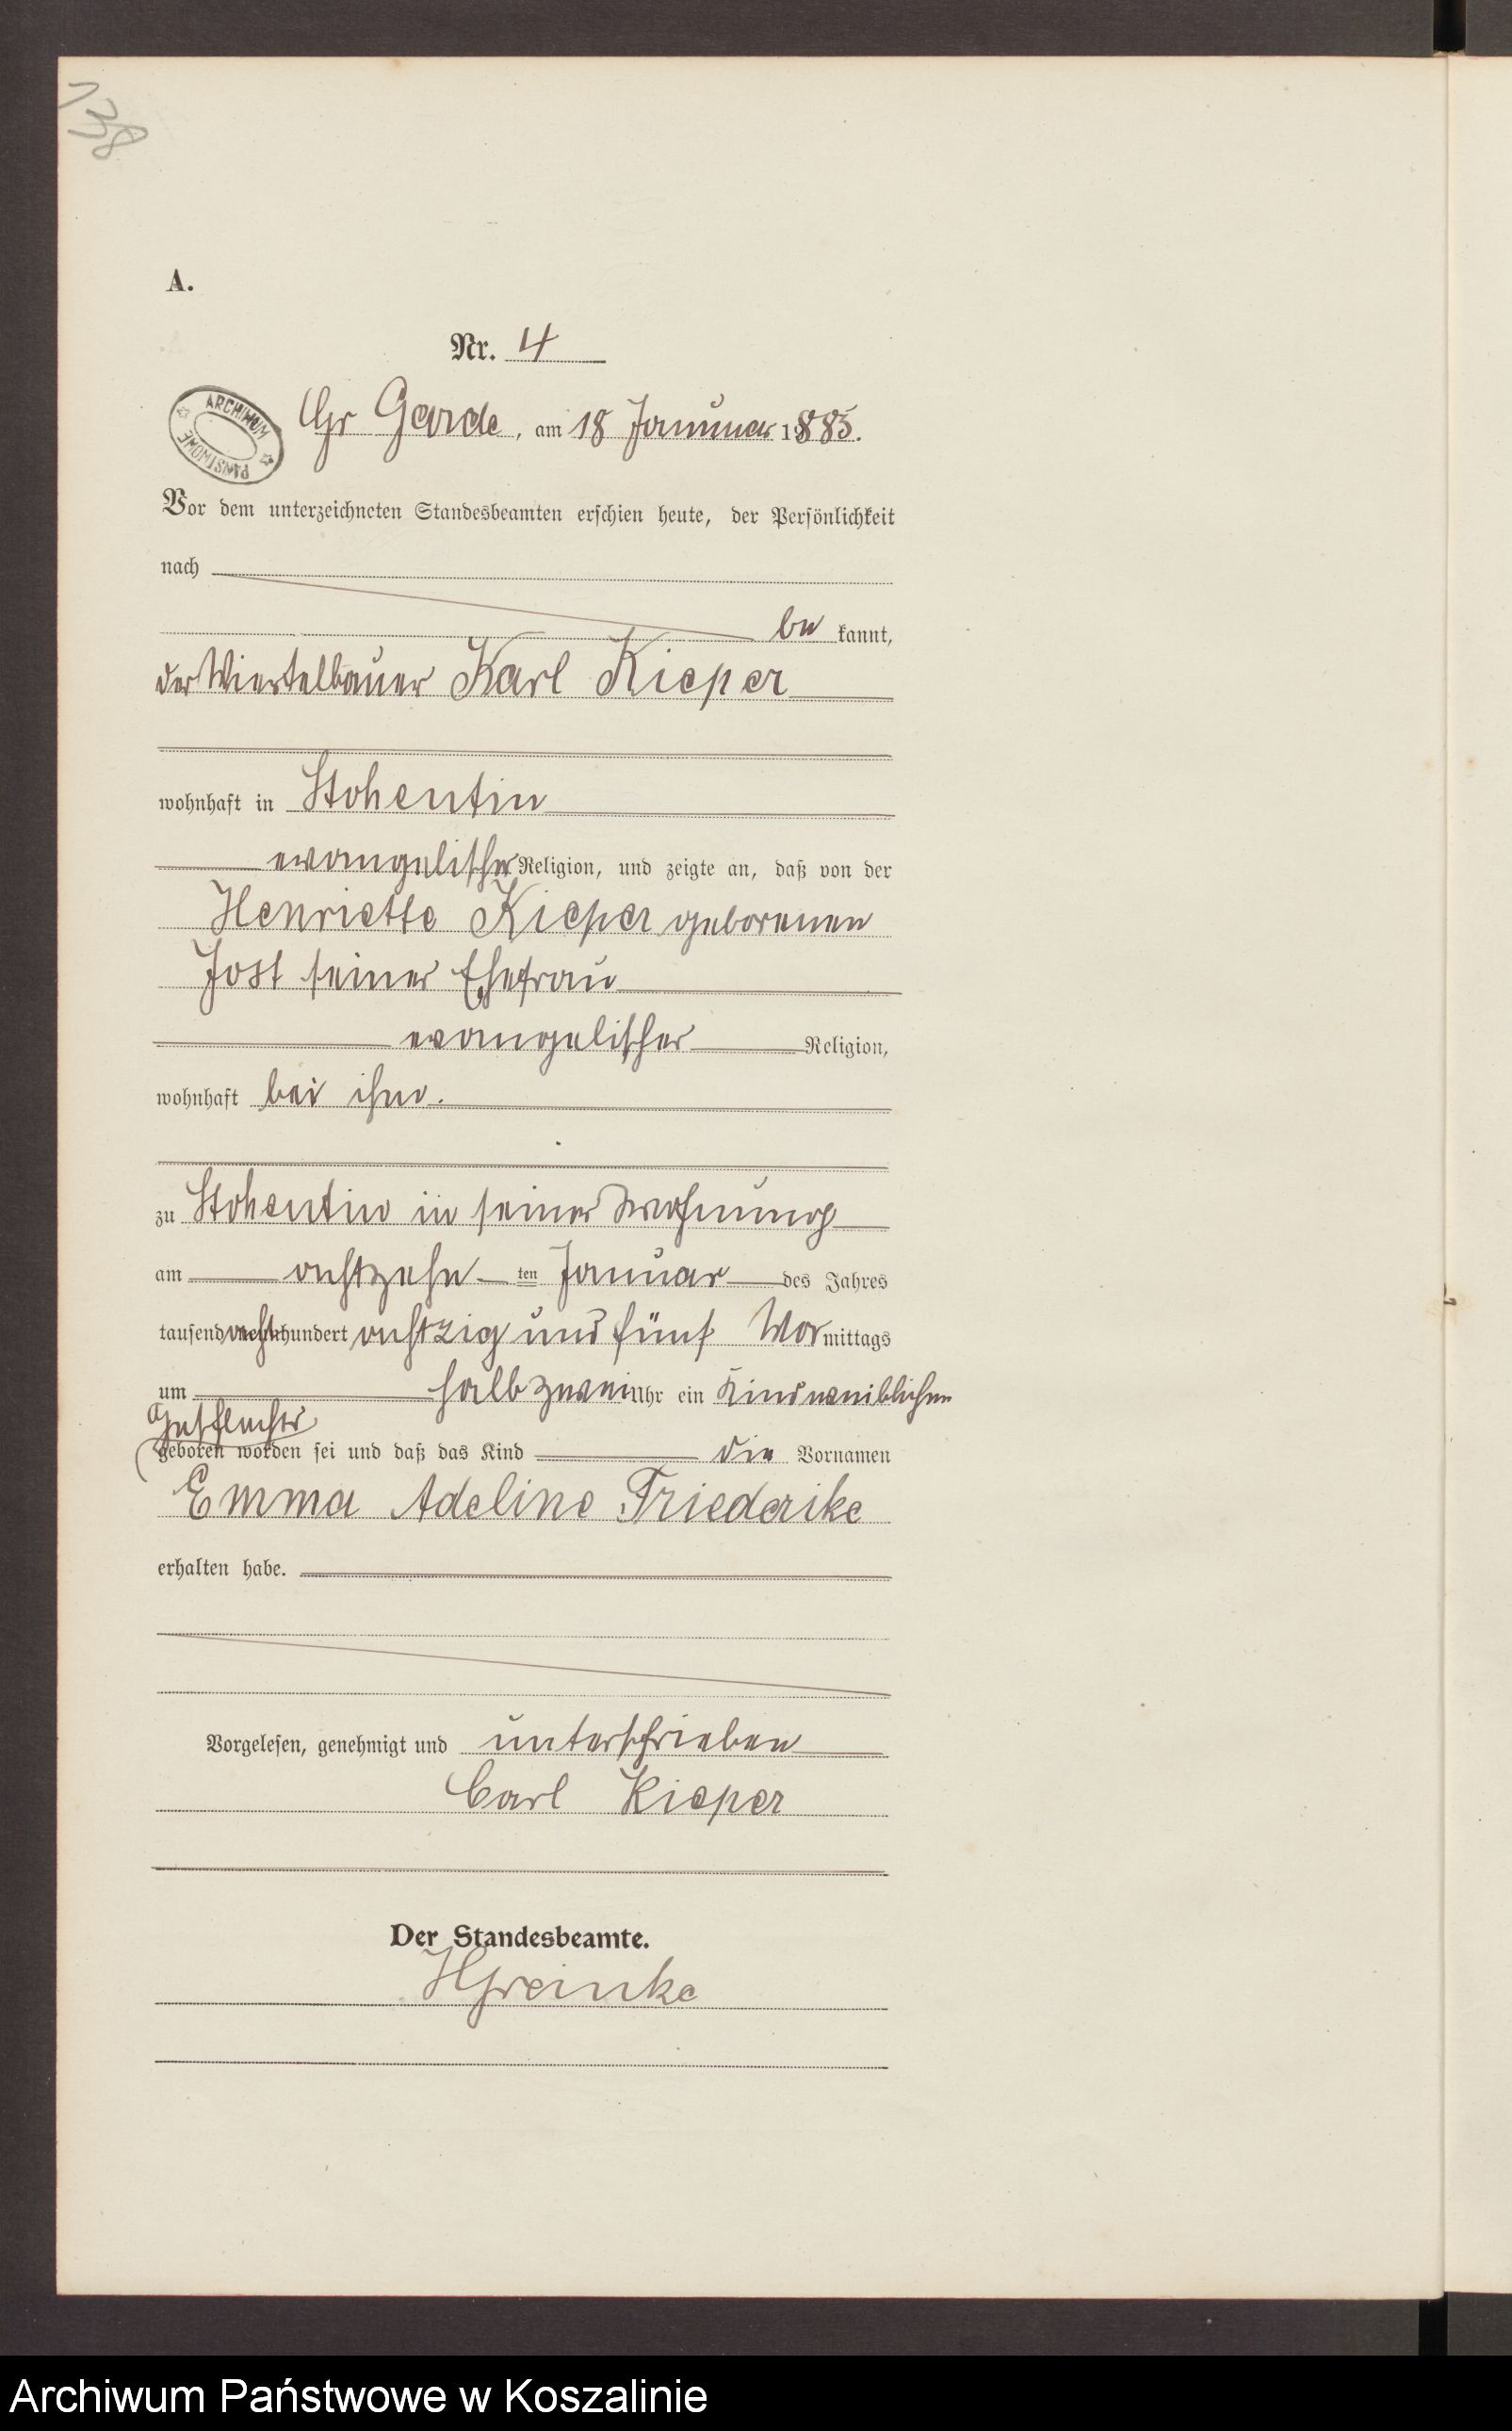 138
A.
Nr. 4
ARCHIWUM PAŃSTWOWE
Gr Garde, am 18 Januar 1885.
Vor dem unterzeichneten Standesbeamten erschien heute, der Persönlichkeit
nach
be kannt,
der Viertelbauer Karl Kieper
wohnhaft in Stohentin
evangelischer Religion, und zeigte an, daß von der
Henriette Kieper geborenen
Jost seiner Ehefrau
evangelischer Religion,
wohnhaft bei ihm.
zu Stohentin in seiner Wohnung
am achtzehn ten Januar des Jahres
tausend acht hundert achtzig und fünf Vor mittags
um halb zwei Uhr ein Kind weiblichen
Geschlechts
geboren worden sei und daß das Kind die Vornamen
Emma Adeline Friederike
erhalten habe.
Vorgelesen, genehmigt und unterschrieben
Carl Kieper
Der Standesbeamte.
Archiwum Państwowe w Koszalinie